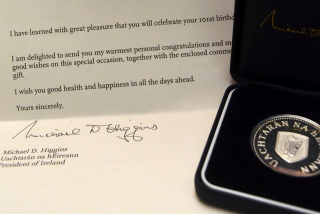 I have learned with great pleasure that you will celebrate your 101st
I am delighted to send you my warmest personal congratulations and
good wishes on this special occasion, together with the enclosed
gift.
I wish you good health and happiness in all the days ahead.
Yours sincerely,
Michael D Higgins
Michael D. Higgins
Uachtarán na hÉireann
President of Ireland
Michael D
UACHTARÁN NA